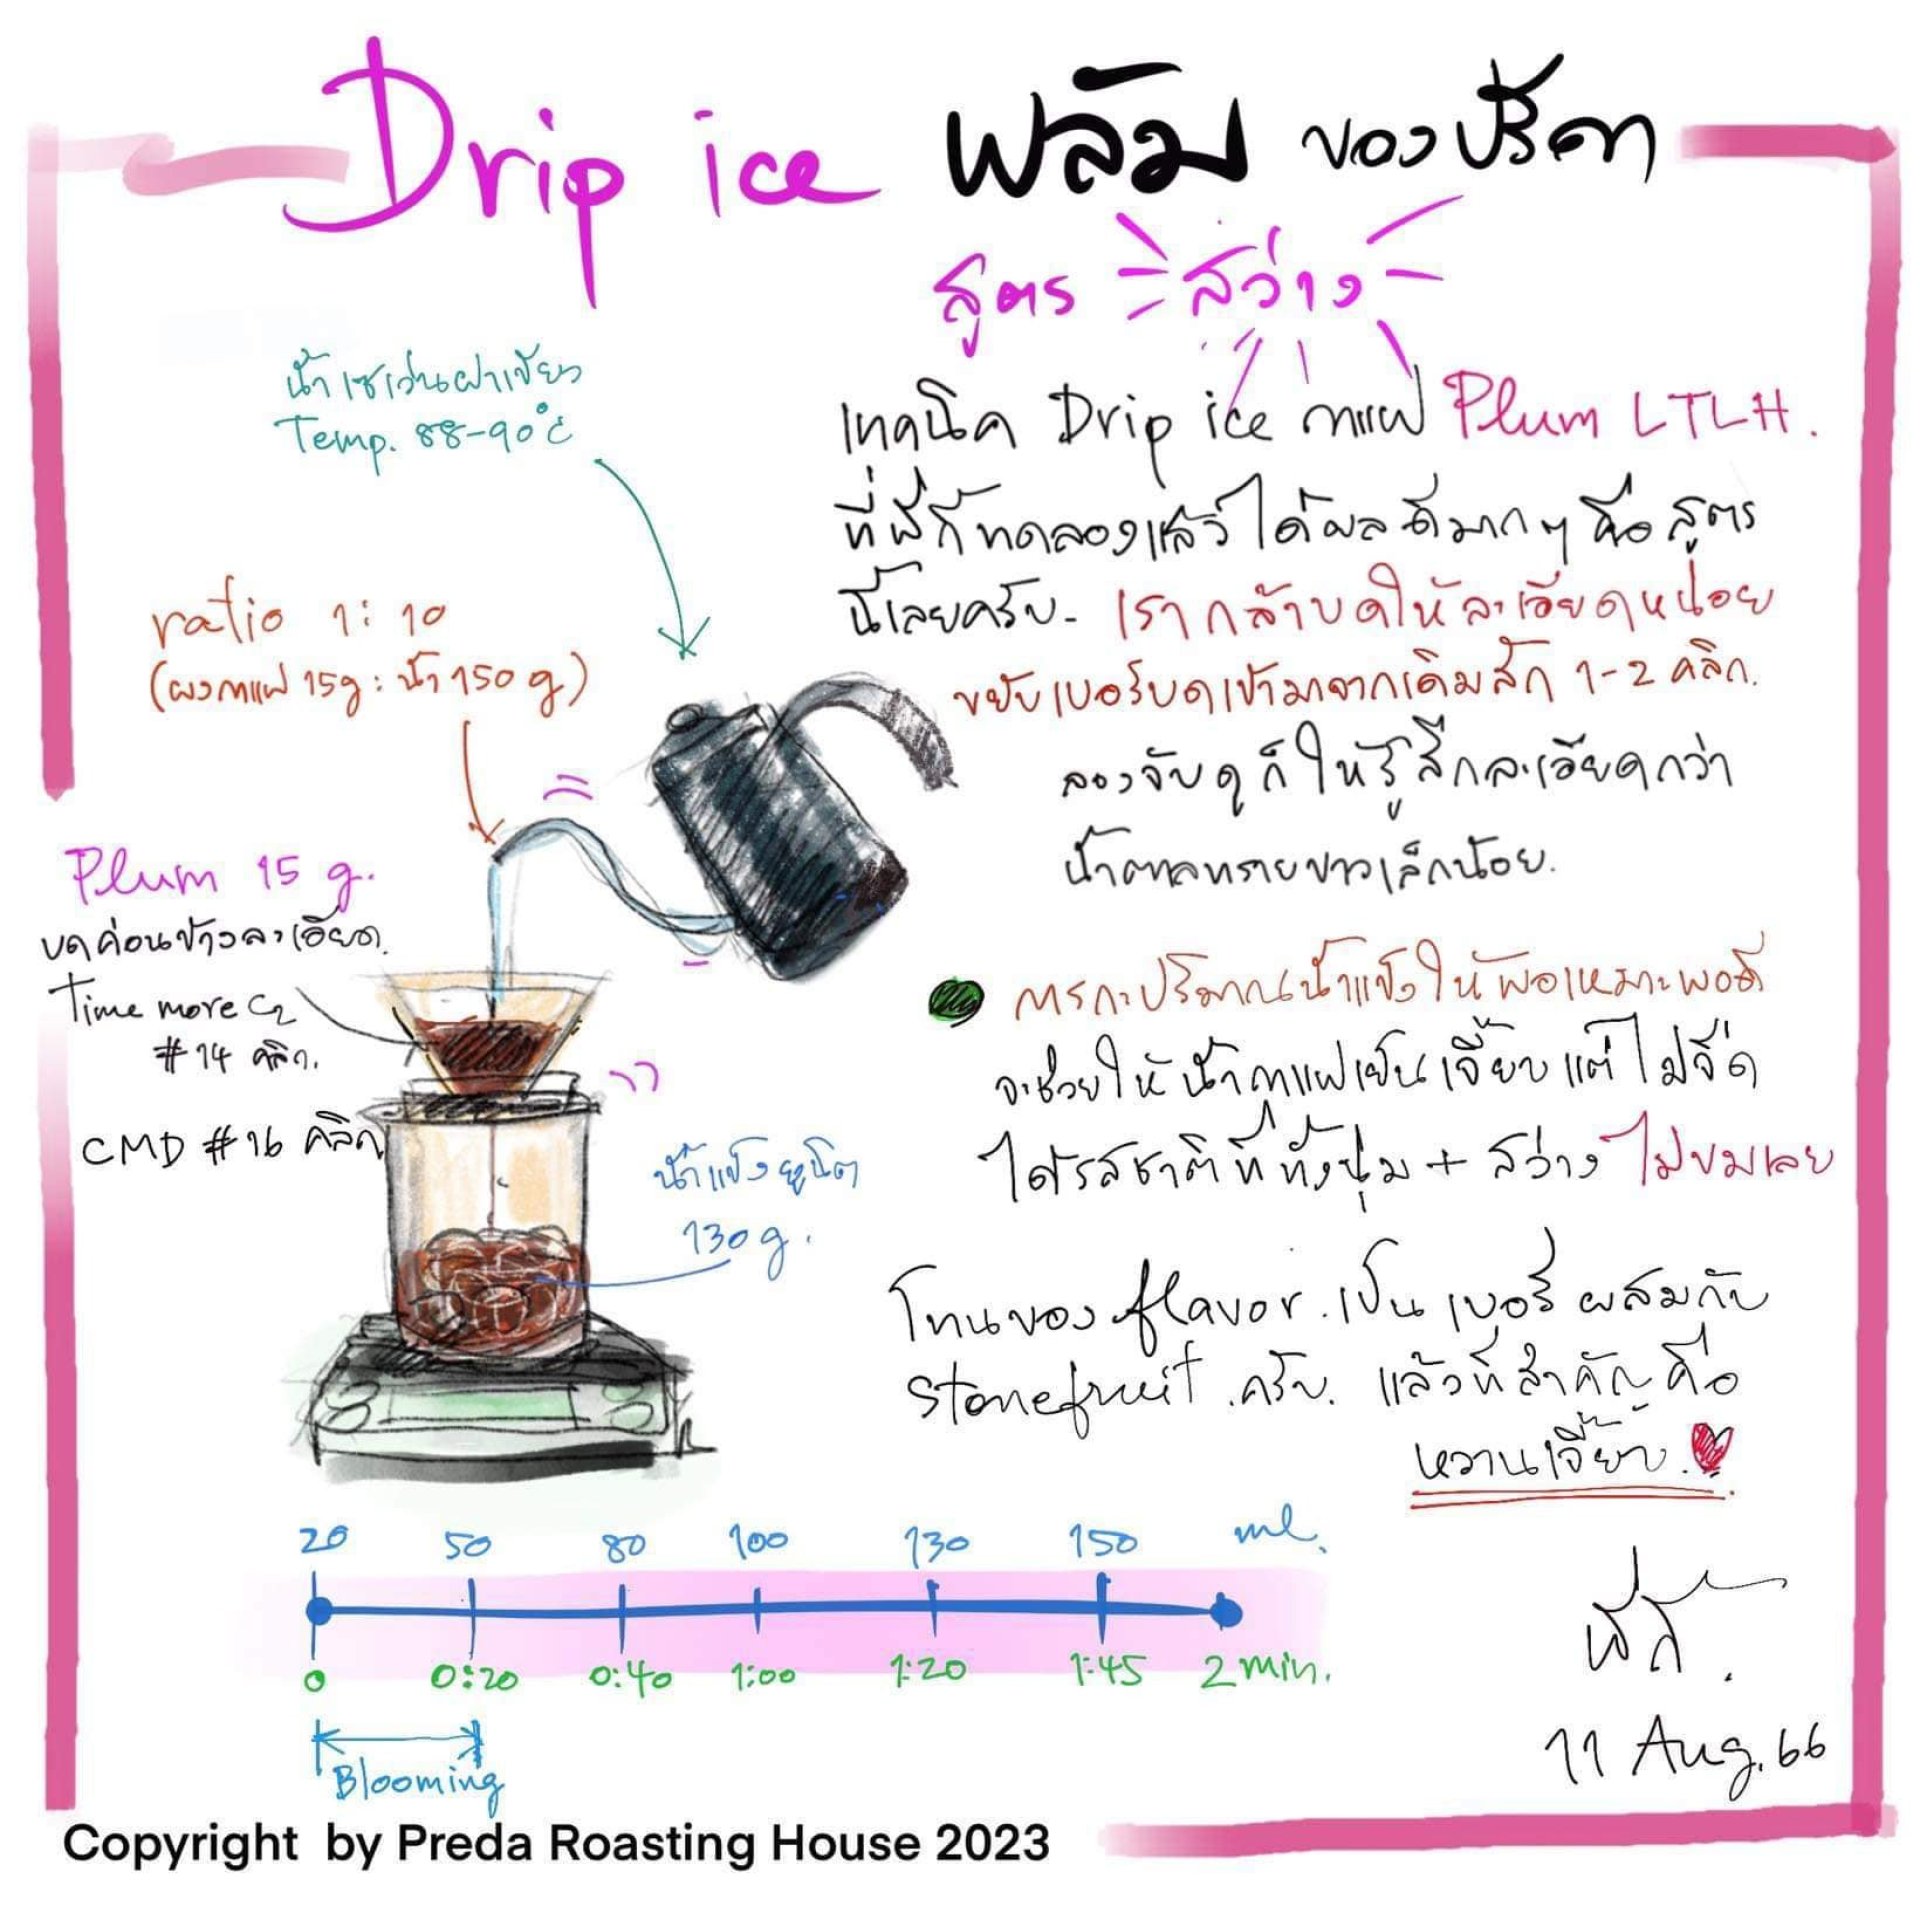 Drip ice พลัม ของปรีดา
สูตร สว่าง
น้ำเซเว่นฝาเขียว
Temp. 88-90°c
ratio 1:10
(ผงกาแฟ 15g : น้ำ 150 g)
Plum 15 g.
บดค่อนข้างละเอียด.
Time more C2
#14 คลิก.
CMD #16 คลิก
น้ำแข็งยูนิต
130 g.
เทคนิค Drip ice กาแฟ Plum LTLH.
ที่พี่กี้ทดลองแล้วได้ผลดีมากๆ คือ สูตร
นี้เลยครับ- เรากล้าบดให้ละเอียดหน่อย
ขยับเบอร์บดเข้ามาจากเดิมสัก 1-2 คลิก.
ลองจับดูก็ให้รู้สึกละเอียดกว่า
น้ำตาลทรายขาวเล็กน้อย.
การกะปริมาณน้ำแข็งให้พอเหมาะพอดี
จะช่วยให้น้ำกาแฟเย็นเจี๊ยบแต่ไม่จืด
ได้รสชาติที่ทั้งนุ่ม + สว่าง ไม่ขมเลย
โทนของ flavor. เป็น เบอรี่ ผสมกับ
Stonefruit. ครับ. แล้วที่สำคัญ คือ
หวานเจี๊ยบ.
20 50 80 100 130 150 ml.
0 0:20 0:40 1:00 1:20 1:45 2 min.
Blooming
11 Aug. 66
Copyright by Preda Roasting House 2023